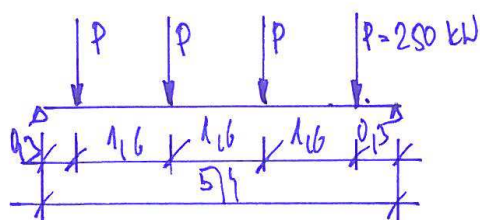 P P P P=250 kN
0,3 1,6 1,6 1,6 0,3
5,4